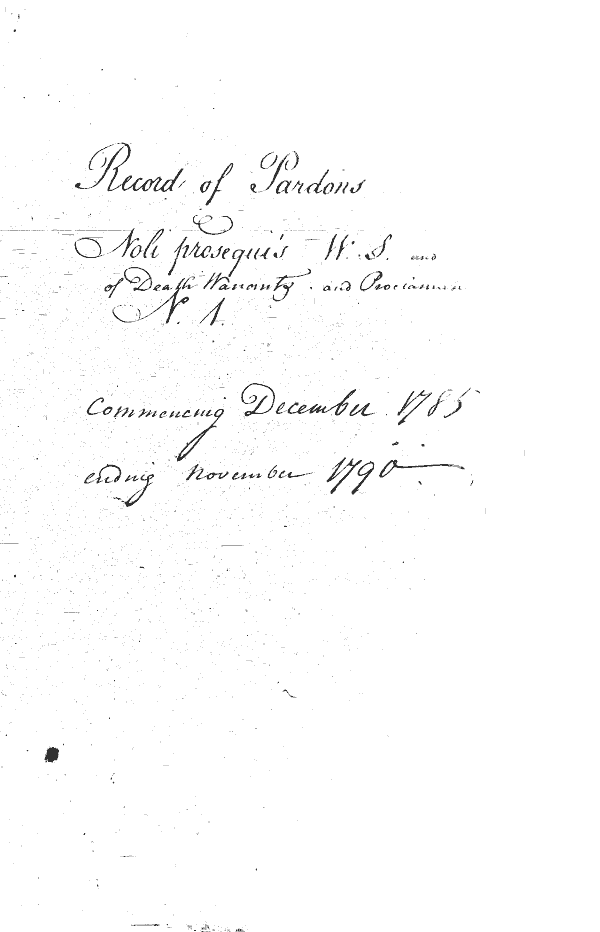 Record of Pardons
&
Noli prosequi's W. S. and
of Death Warrants and
N. 1.
Commencing December 1785
ending November 1790